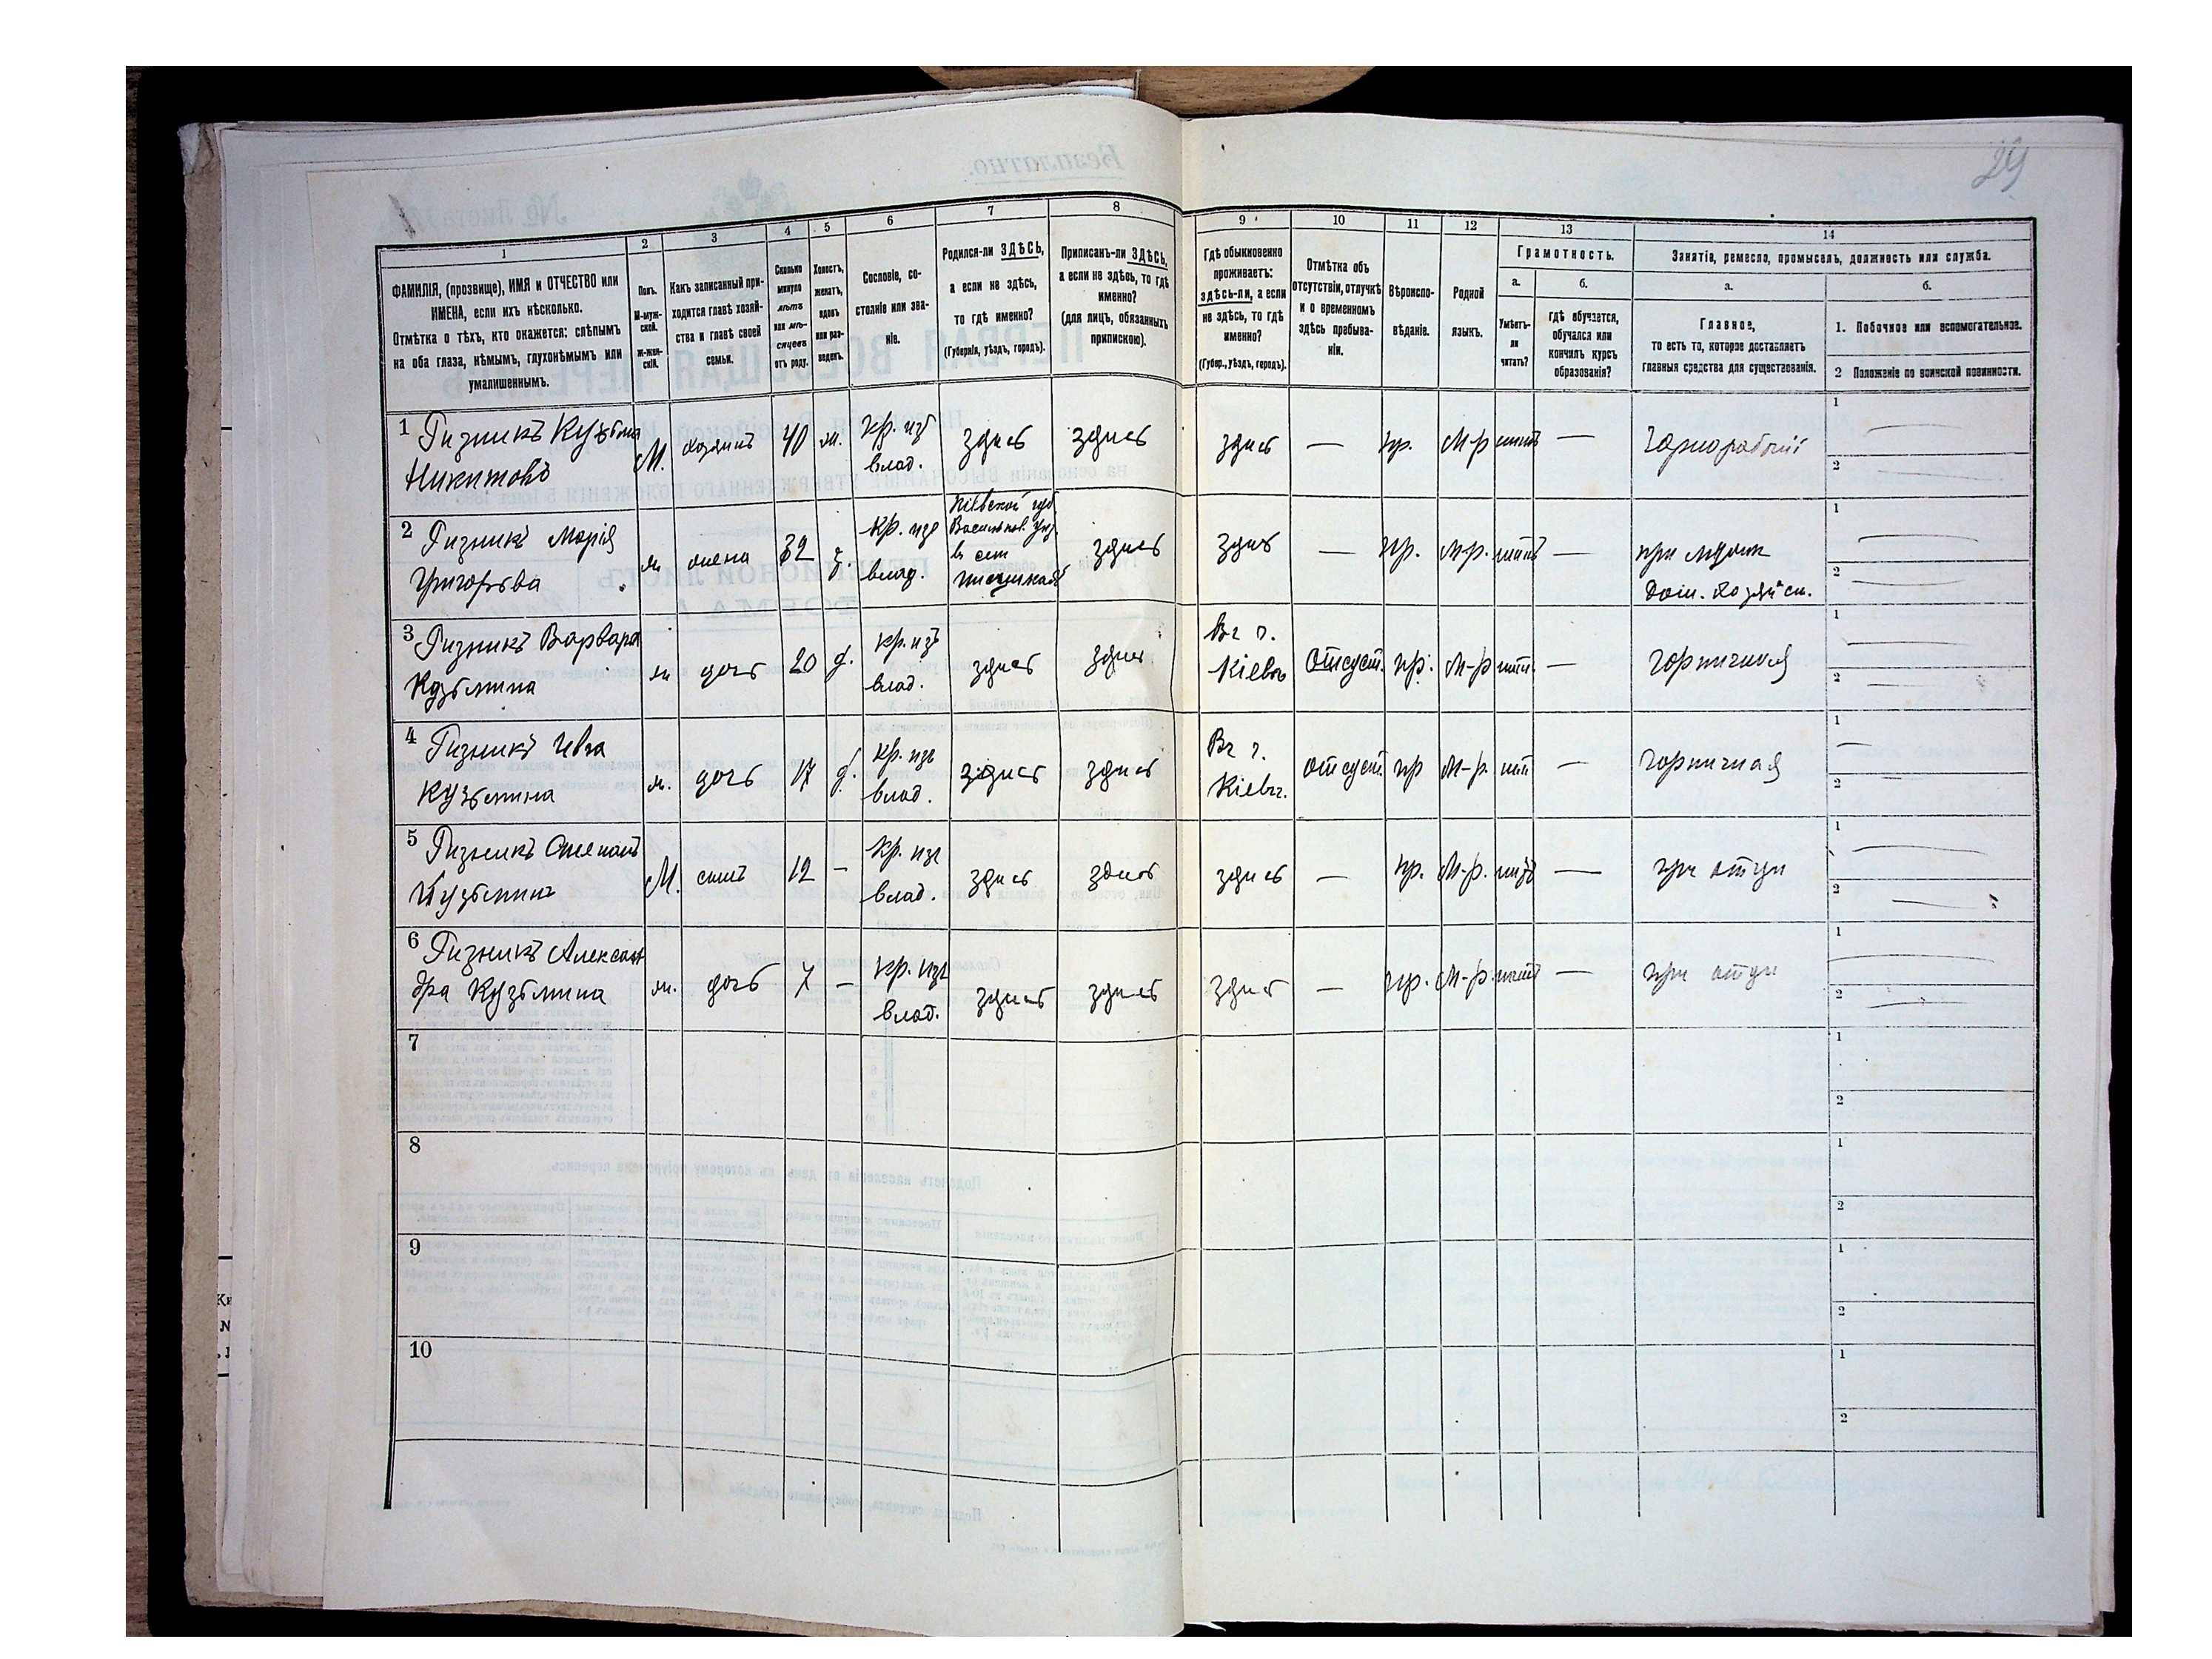 29
1
2
3
4
5
6
7
8
9
10
11
12
13
14
ФАМИЛІЯ, (прозвище), ИМЯ и ОТЧЕСТВО или
ИМЕНА, если ихъ нѣсколько.
Отмѣтка о тѣхъ, кто окажется: слѣпымъ
на оба глаза, нѣмымъ, глухонѣмымъ или
умалишеннымъ.
Полъ.
М-муж-
ской.
Ж-жен-
скій.
Какъ записанный при-
ходится главѣ хозяй-
ства и главѣ своей
семьи.
Сколько
минуло
лѣтъ
или мѣ-
сяцевъ
отъ роду.
Холостъ,
женатъ,
вдовъ
или раз-
веденъ.
Сословіе, со-
стояніе или зва-
ніе.
Родился-ли ЗДѢСЬ,
а если не здѣсь,
то гдѣ именно?
(Губернія, уѣздъ, городъ).
Приписанъ-ли ЗДѢСЬ,
а если не здѣсь, то гдѣ
именно?
(для лицъ, обязанныхъ
припискою).
Гдѣ обыкновенно
проживаетъ:
здѣсь-ли, а если
не здѣсь, то гдѣ
именно?
(Губер., уѣздъ, городъ).
Отмѣтка объ
отсутствіи, отлучкѣ
и о временномъ
здѣсь пребыва-
ніи.
Вѣроиспо-
вѣданіе.
Родной
языкъ.
Грамотность.
а.
Умѣетъ-
ли
читать?
б.
гдѣ обучается,
обучался или
кончилъ курсъ
образованія?
Занятіе, ремесло, промыселъ, должность или служба.
а.
Главное,
то есть то, которое доставляетъ
главныя средства для существованія.
б.
1. Побочное или вспомогательное.
2 Положеніе по воинской повинности.
1 Гизникъ Кузьма
Никитовъ
М. хозяинъ 40 ж. кр. изъ
влад. здись здись здись — пр. М-р нитъ — Чорнорабочій
1
2
2 Гизникъ Марія
Григорьева
ж жена 32 з. кр. изъ
влад.
Кіевской губ
Васильков. уиз.
в сет
здись здись — пр. М-р. нитъ — при мужи
дом. хозяйсп.
1
2
3 Гизникъ Варвара
Кузьмина
ж дочь 20 д. кр. изъ
влад. здись здись Въ г.
Кіевъ отсуст. пр. М-р нит. — горничная
1
2
4 Гизникъ
Кузьмина
ж. дочь 17 д. кр. изъ
влад. здись здись Въ г.
Кіевъ. отсуст. пр М-р. нит — горничная
1
2
5 Гизникъ Степанъ
Кузьминъ
М. сынъ 12 — кр. изъ
влад. здись здись здись — пр. М-р. нитъ — при отци
1
2
6 Гизникъ Алексан
дра Кузьмина
ж. дочь 7 — кр. изъ
влад. здись здись здись — пр. М-р. нитъ — при отци
1
2
7
1
2
8
1
2
9
1
2
10
1
2